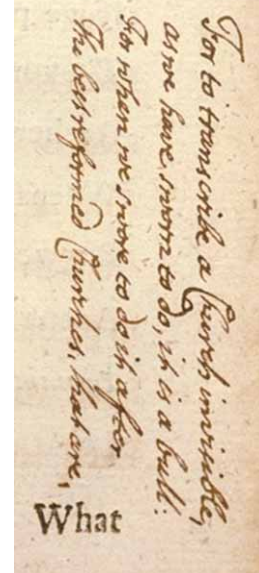 For to transcribe a Church invisible,
as we have sworn to do, it is a bull:
For when we swore to do it after
The best reformed Churches, that are,
What